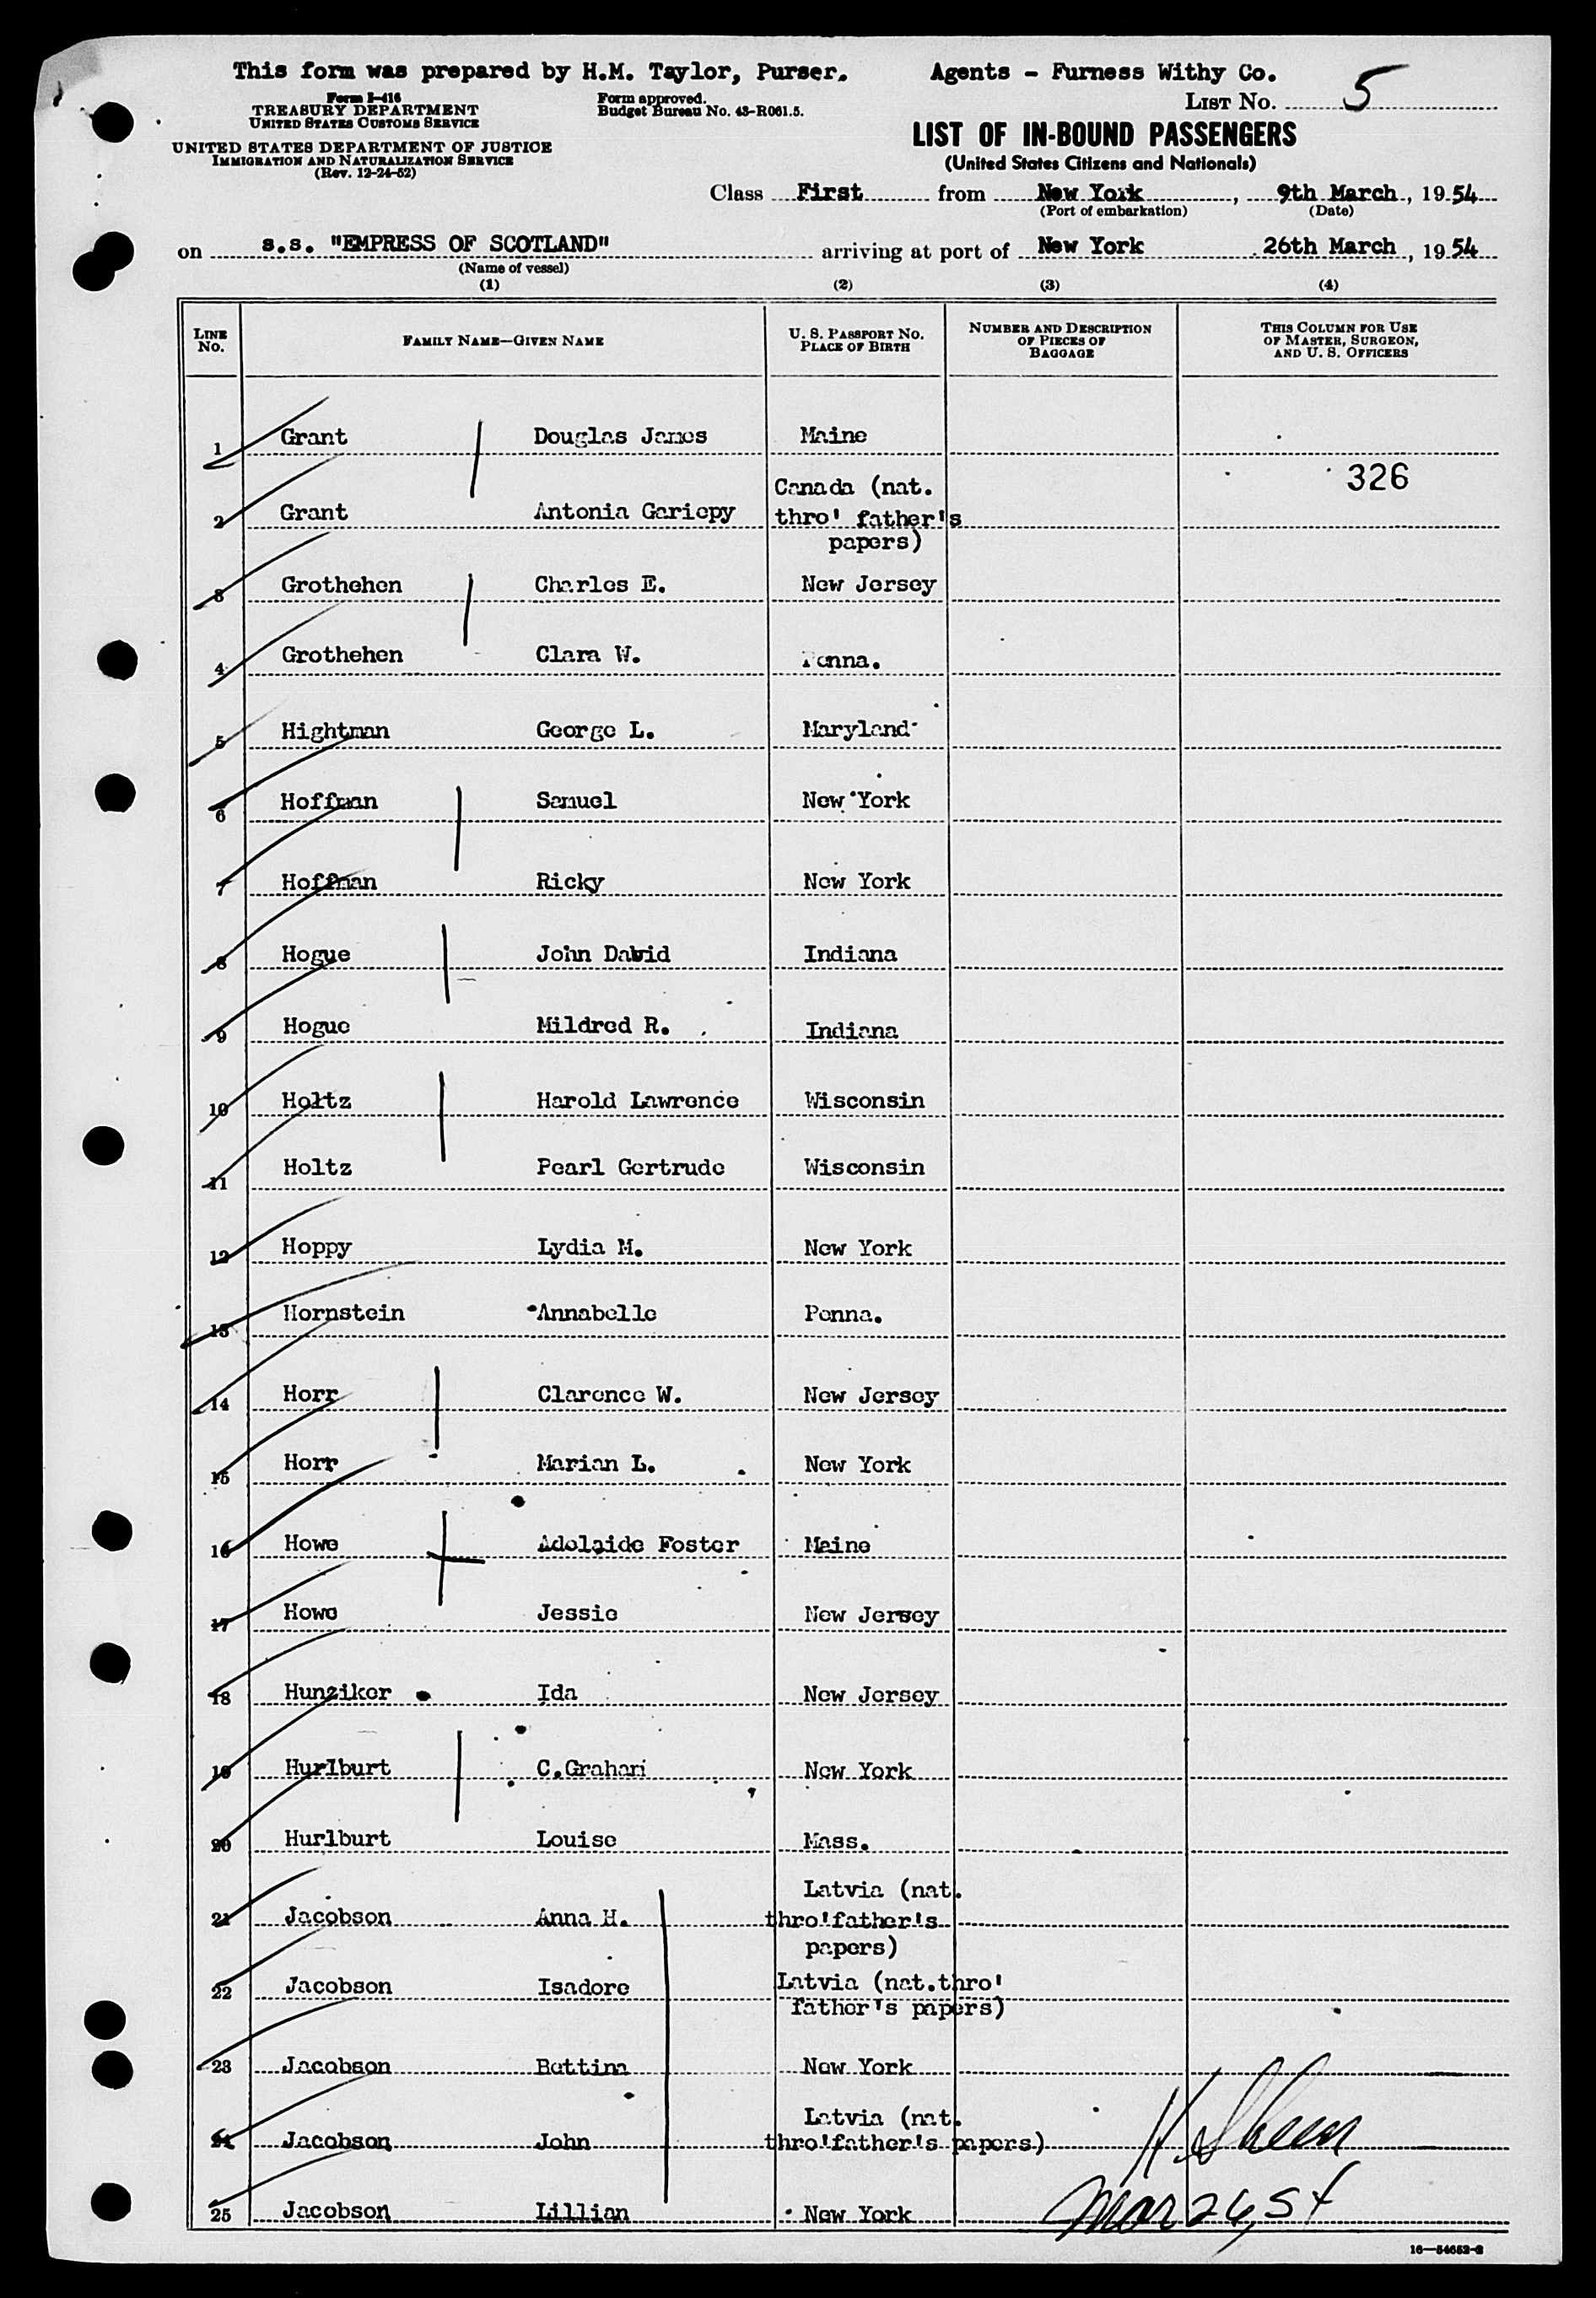 This form was prepared by H.M. Taylor, Purser. Agents - Furness Withy Co.
Form I-416
TREASURY DEPARTMENT
UNITED STATES CUSTOMS SERVICE
Form approved.
Budget Bureau No. 43-R061.5.
LIST No. 5
UNITED STATES DEPARTMENT OF JUSTICE
IMMIGRATION AND NATURALIZATION SERVICE
(Rev. 12-24-52)
LIST OF IN-BOUND PASSENGERS
(United States Citizens and Nationals)
Class First from New York, 9th March, 1954
(Port of embarkation) (Date)
on s.s. "EMPRESS OF SCOTLAND" arriving at port of New York 26th March, 1954
(Name of vessel)
(1) (2) (3) (4)
LINE No. FAMILY NAME—GIVEN NAME U. S. PASSPORT No. PLACE OF BIRTH NUMBER AND DESCRIPTION OF PIECES OF BAGGAGE THIS COLUMN FOR USE OF MASTER, SURGEON, AND U. S. OFFICERS
1 Grant Douglas James Maine
326
2 Grant Antonia Gariepy Canada (nat. thro' father's papers)
3 Grothehen Charles E. New Jersey
4 Grothehen Clara W. Penna.
5 Hightman George L. Maryland
6 Hoffman Samuel New York
7 Hoffman Ricky New York
8 Hogue John David Indiana
9 Hogue Mildred R. Indiana
10 Holtz Harold Lawrence Wisconsin
11 Holtz Pearl Gertrude Wisconsin
12 Hoppy Lydia M. New York
13 Hornstein Annabelle Penna.
14 Horr Clarence W. New Jersey
15 Horr Marian L. New York
16 Howe Adelaide Foster Maine
17 Howe Jessie New Jersey
18 Hunziker Ida New Jersey
19 Hurlburt C.Graham New York
20 Hurlburt Louise Mass.
21 Jacobson Anna H. Latvia (nat. thro'father's papers)
22 Jacobson Isadore Latvia (nat.thro' father's papers)
23 Jacobson Bettina New York
24 Jacobson John Latvia (nat. thro'father's papers)
25 Jacobson Lillian New York
Mar 26, 54
16—54652-2